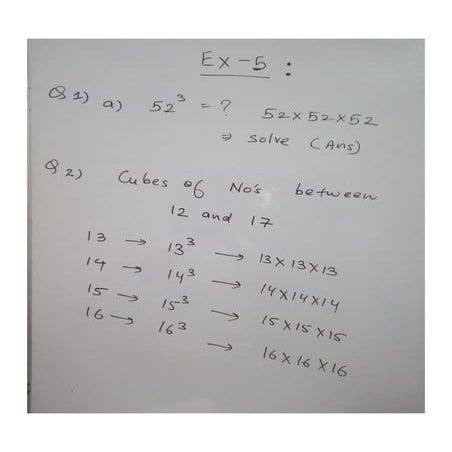 Ex-5 :
Q 1) a) 52³ = ? 52×52×52
⇒ Solve (Ans)
Q 2) Cubes of No's between
12 and 17
13 → 13³ → 13×13×13
14 → 14³ → 14×14×14
15 → 15³ → 15×15×15
16 → 16³ → 16×16×16